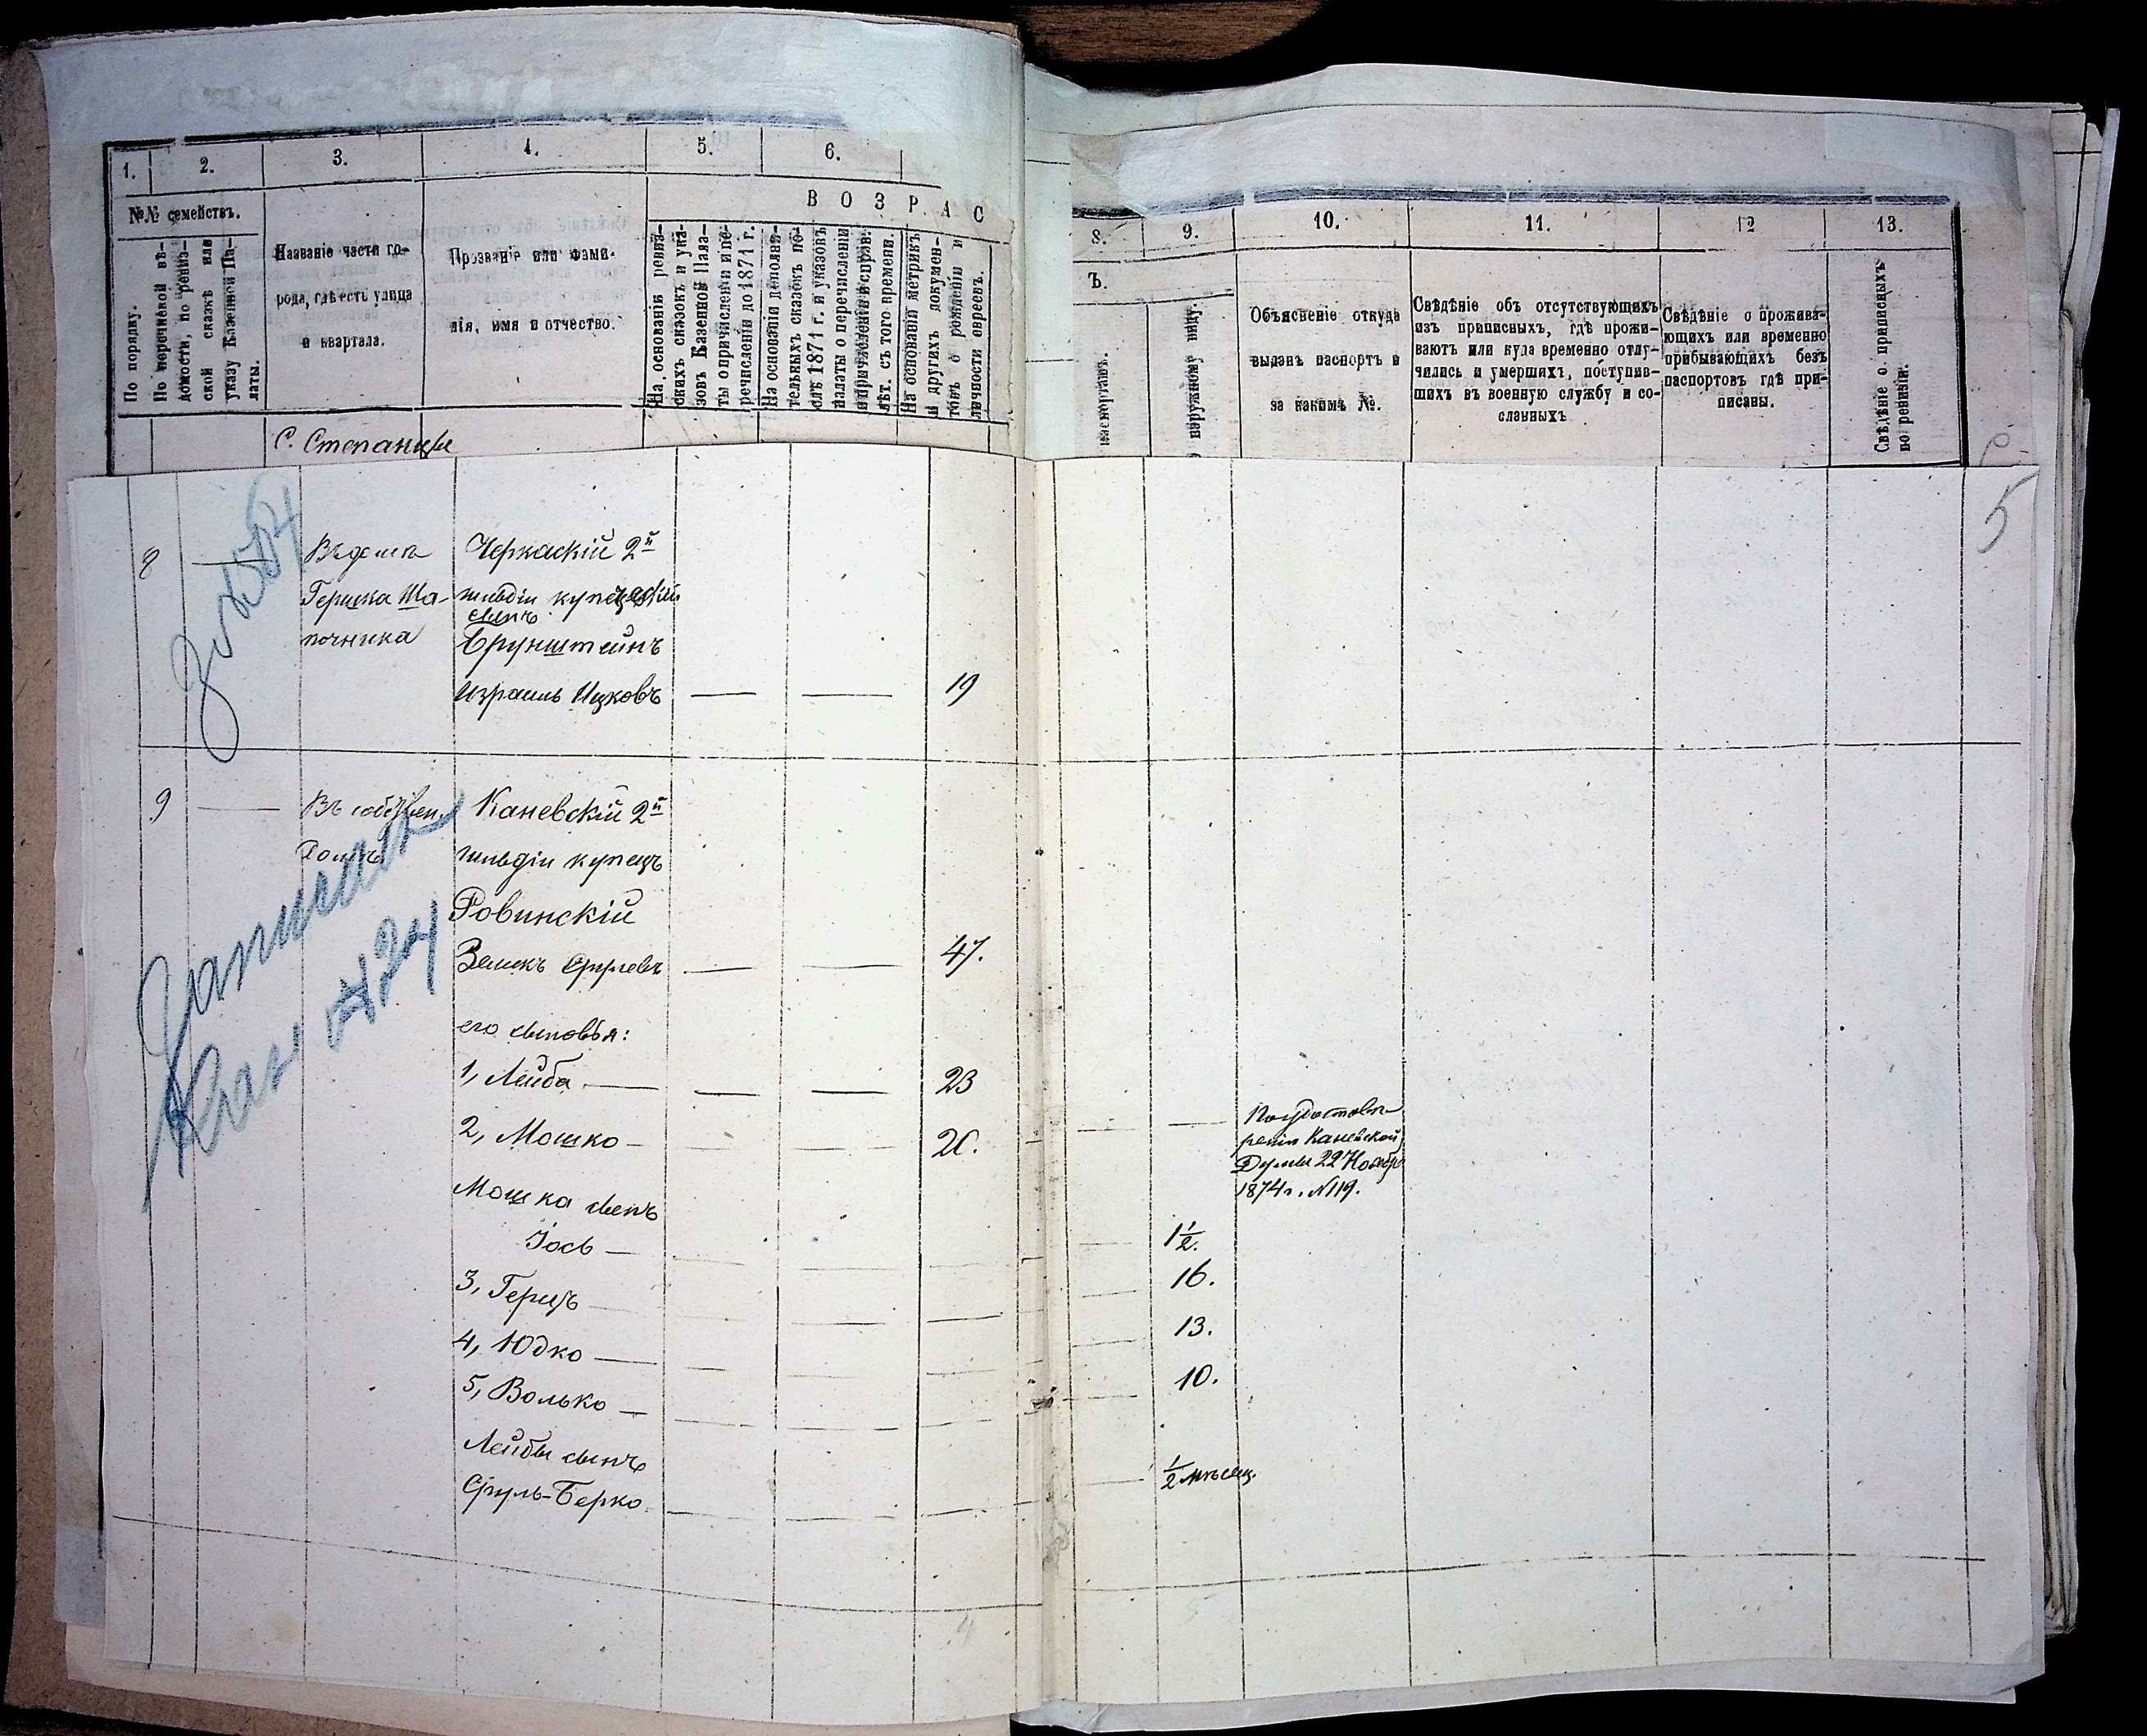 1. 2. 3. 4. 5. 6.
8. 9. 10. 11. 12 13.
В О З Р А С
Ъ.
№№ семействъ.
По порядку.
По перечневой вѣ-
домости, по ревиз-
ской сказкѣ или
указу Казенной Па-
латы.
Названіе части го-
рода, гдѣ есть улица
и квартала.
Прозваніе или фами-
лія, имя и отчество.
На основаніи ревиз-
скихъ сказокъ и ука-
зовъ Казенной Пала-
ты о причисленіи и пе-
речисленіи до 1871 г.
На основаніи дополни-
тельныхъ сказокъ по-
слѣ 1871 г. и указовъ
палаты о перечисленіи
и причисленіи и справ.
лѣт. съ того времени.
На основаніи метрикъ
и другихъ докумен-
товъ о рожденіи и
личности евреевъ.
паспортамъ.
наружному виду.
Объясненіе откуда
выданъ паспортъ и
за какимъ №.
Свѣдѣніе объ отсутствующихъ
изъ приписныхъ, гдѣ прожи-
ваютъ или куда временно отлу-
чились и умершихъ, поступив-
шихъ въ военную службу и со-
сланныхъ
Свѣдѣніе о прожива-
ющихъ или временно
прибывающихъ безъ
паспортовъ гдѣ при-
писаны.
Свѣдѣніе о приписныхъ
по ревизіи.
С. Степанцы
5
8 — Въ домѣ Черкаскій 2й
Гершка Ша- гильдіи купеческій
сынъ
почника Брунштейнъ
Израиль Ицковъ — — 19
9 — Въ собствен. Каневскій 2й
домѣ гильдіи купецъ
Ровинскій
Зеликъ — — 47.
его сыновья:
1, Лейба — — — 23
2, Мошко — — — 20. — — По удостовѣ-
реnію Каневской
Думы 22 Ноябр
1874 г. №119.
Мошка сынъ
Іось — — — — 1½.
3, Герцъ — — — — 16.
4, Юдко — — — — 13.
5, Волько — — — — 10.
Лейбы сынъ
Сруль-Берко — — — — ½ мѣсяц.
Записан
Кан